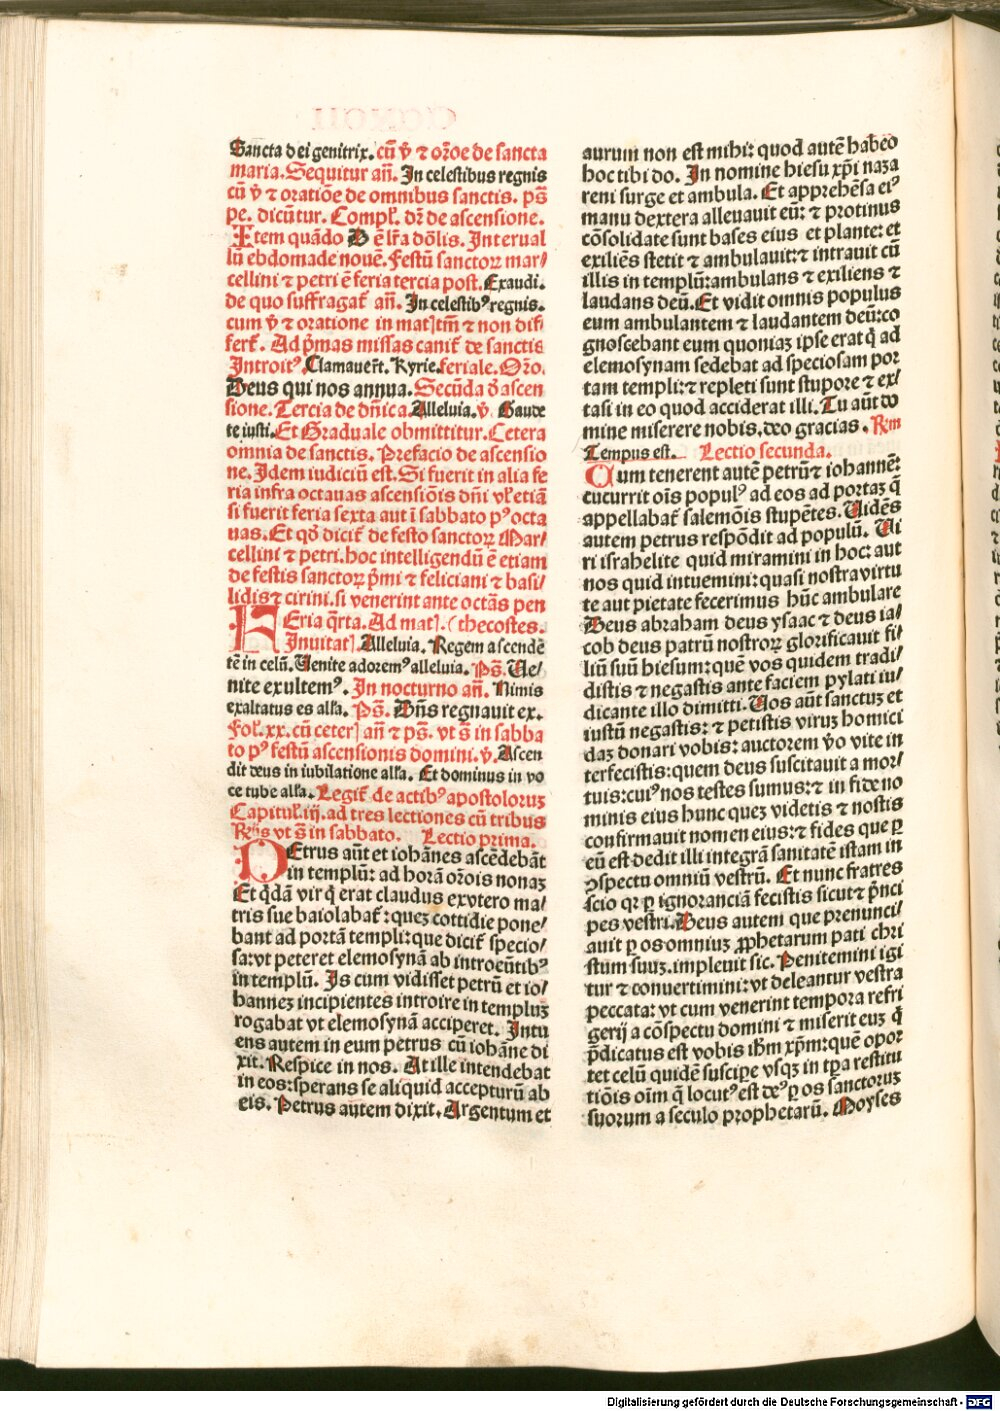 Sancta dei genitrix. cũ v̉ ⁊ or̃oe de sancta
maria. Sequitur añ. In celestibus regnis
cũ v̉ ⁊ oratiõe de omnibus sanctis. ps̃
pe. dicũtur. Compl̃. dr̃ de ascensione.
Item quãdo D ẽ lr̃a dõlis. Interual
lũ ebdomade nouẽ. Festũ sanctoꝝ mar⸗
cellini ⁊ petri ẽ feria tercia post. Exaudi.
de quo suffragat̃ añ. In celestibꝰ regnis.
cum v̉ ⁊ oratione in mat]tm̃ ⁊ non dif⸗
fert̃. Ad p̃mas missas canit̃ de sanctis
Introitꝰ. Clamauer̃t. Kyrie. feriale. Or̃o.
Deus qui nos annua. Secũda d̉ ascen
sione. Tercia de dñica. Alleluia. v̉. Gaude
te iusti. Et Graduale obmittitur. Cetera
omnia de sanctis. Prefacio de ascensio
ne. Idem iudiciũ est. Si fuerit in alia fe
ria infra octauas ascensiõis dñi vl̃ etiã
si fuerit feria sexta aut ĩ sabbato pꝰ octa
uas. Et qđ dicit̃ de festo sanctoꝝ Mar⸗
cellini ⁊ petri. hoc intelligendũ ẽ etiam
de festis sanctoꝝ p̃mi ⁊ feliciani ⁊ basi⸗
lidis ⁊ cirini. si venerint ante octãs pen
FEria q̃rta. Ad mat]. (thecostes.
Inuitat]. Alleluia. Regem ascendẽ
tẽ in celũ. Uenite adoremꝰ alleluia. Ps̃. Ue⸗
nite exultemꝰ. In nocturno añ. Nimis
exaltatus es all̃a. Ps̃. Dñs regnauit ex.
Fol̃. xx. cũ ceter] añ ⁊ ps̃. vt s̃ in sabba
to pꝰ festũ ascensionis domini. v̉. Ascen
dit deus in iubilatione all̃a. Et dominus in vo
ce tube all̃a. Legit̃ de actibꝰ apostoloruꝫ
Capitul̃. iij. ad tres lectiones cũ tribus
Rꝰiis vt s̃ in sabbato. Lectio prima.
PEtrus aũt et iohãnes ascẽdebãt
in templũ: ad horã or̃ois nonaꝫ
Et q̃dã vir q̃ erat claudus ex vtero ma⸗
tris sue baiolabat̃: queꝫ cottidie pone⸗
bant ad portã templi: que dicit̃ specio⸗
sa: vt peteret elemosynã ab introeũtibꝰ
in templũ. Is cum vidisset petrũ et io⸗
hanneꝫ incipientes introire in templuꝫ
rogabat vt elemosynã acciperet. Intu
ens autem in eum petrus cũ iohãne di
xit. Respice in nos. At ille intendebat
in eos: sperans se aliquid accepturũ ab
eis. Petrus autem dixit. Argentum et
aurum non est mihi: quod autẽ habeo
hoc tibi do. In nomine hiesu xp̃i naza
reni surge et ambula. Et apprehẽsa eiꝰ
manu dextera alleuauit eũ: ⁊ protinus
cõsolidate sunt bases eius et plante: et
exiliẽs stetit ⁊ ambulauit: ⁊ intrauit cũ
illis in templũ: ambulans ⁊ exiliens ⁊
laudans deũ. Et vidit omnis populus
eum ambulantem ⁊ laudantem deũ: co
gnoscebant eum quoniaꝫ ipse erat q̃ ad
elemosynam sedebat ad speciosam por
tam templi: ⁊ repleti sunt stupore ⁊ ex⸗
tasi in eo quod acciderat illi. Tu aũt do
mine miserere nobis. deo gracias. Rm
Tempus est. Lectio secunda.
Cum tenerent autẽ petrũ ⁊ iohannẽ:
cucurrit oĩs populꝰ ad eos ad portaꝫ q̃
appellabat̃ salemõis stupẽtes. Uidẽs
autem petrus respõdit ad populũ. Ui
ri israhelite quid miramini in hoc: aut
nos quid intuemini: quasi nostra virtu
te aut pietate fecerimus hũc ambulare
Deus abraham deus ysaac ⁊ deus ia⸗
cob deus patrũ nostroꝝ glorificauit fi⸗
liũ suũ hiesum: quẽ vos quidem tradi⸗
distis ⁊ negastis ante faciem pylati iu⸗
dicante illo dimitti. Uos aũt sanctuꝫ et
iustũ negastis: ⁊ petistis viruꝫ homici
daꝫ donari vobis: auctorem v̉o vite in
terfecistis: quem deus suscitauit a mor⸗
tuis: cuiꝰ nos testes sumus: ⁊ in fide no
minis eius hunc queꝫ videtis ⁊ nostis
confirmauit nomen eius: ⁊ fides que ꝑ
eũ est dedit illi integrã sanitatẽ istam in
ꝯspectu omniũ vestrũ. Et nunc fratres
scio qꝛ ꝑ ignoranciã fecistis sicut ⁊ p̃nci
pes vestri. Deus autem que prenunci⸗
auit ꝑ os omniuꝫ ꝓphetarum pati chri
stum suuꝫ. impleuit sic. Penitemini igi
tur ⁊ conuertimini: vt deleantur vestra
peccata: vt cum venerint tempora refri
gerij a cõspectu domini ⁊ miserit euꝫ q̃
p̃dicatus est vobis ihm̃ xp̃m: quẽ opor
tet celũ quidẽ suscipe vsqꝫ in tp̃a restitu
tiõis oĩm q̃ locutꝰ est deꝰ ꝑ os sanctoruꝫ
suorum a seculo prophetarũ. Moyses
Digitalisierung gefördert durch die Deutsche Forschungsgemeinschaft - DFG